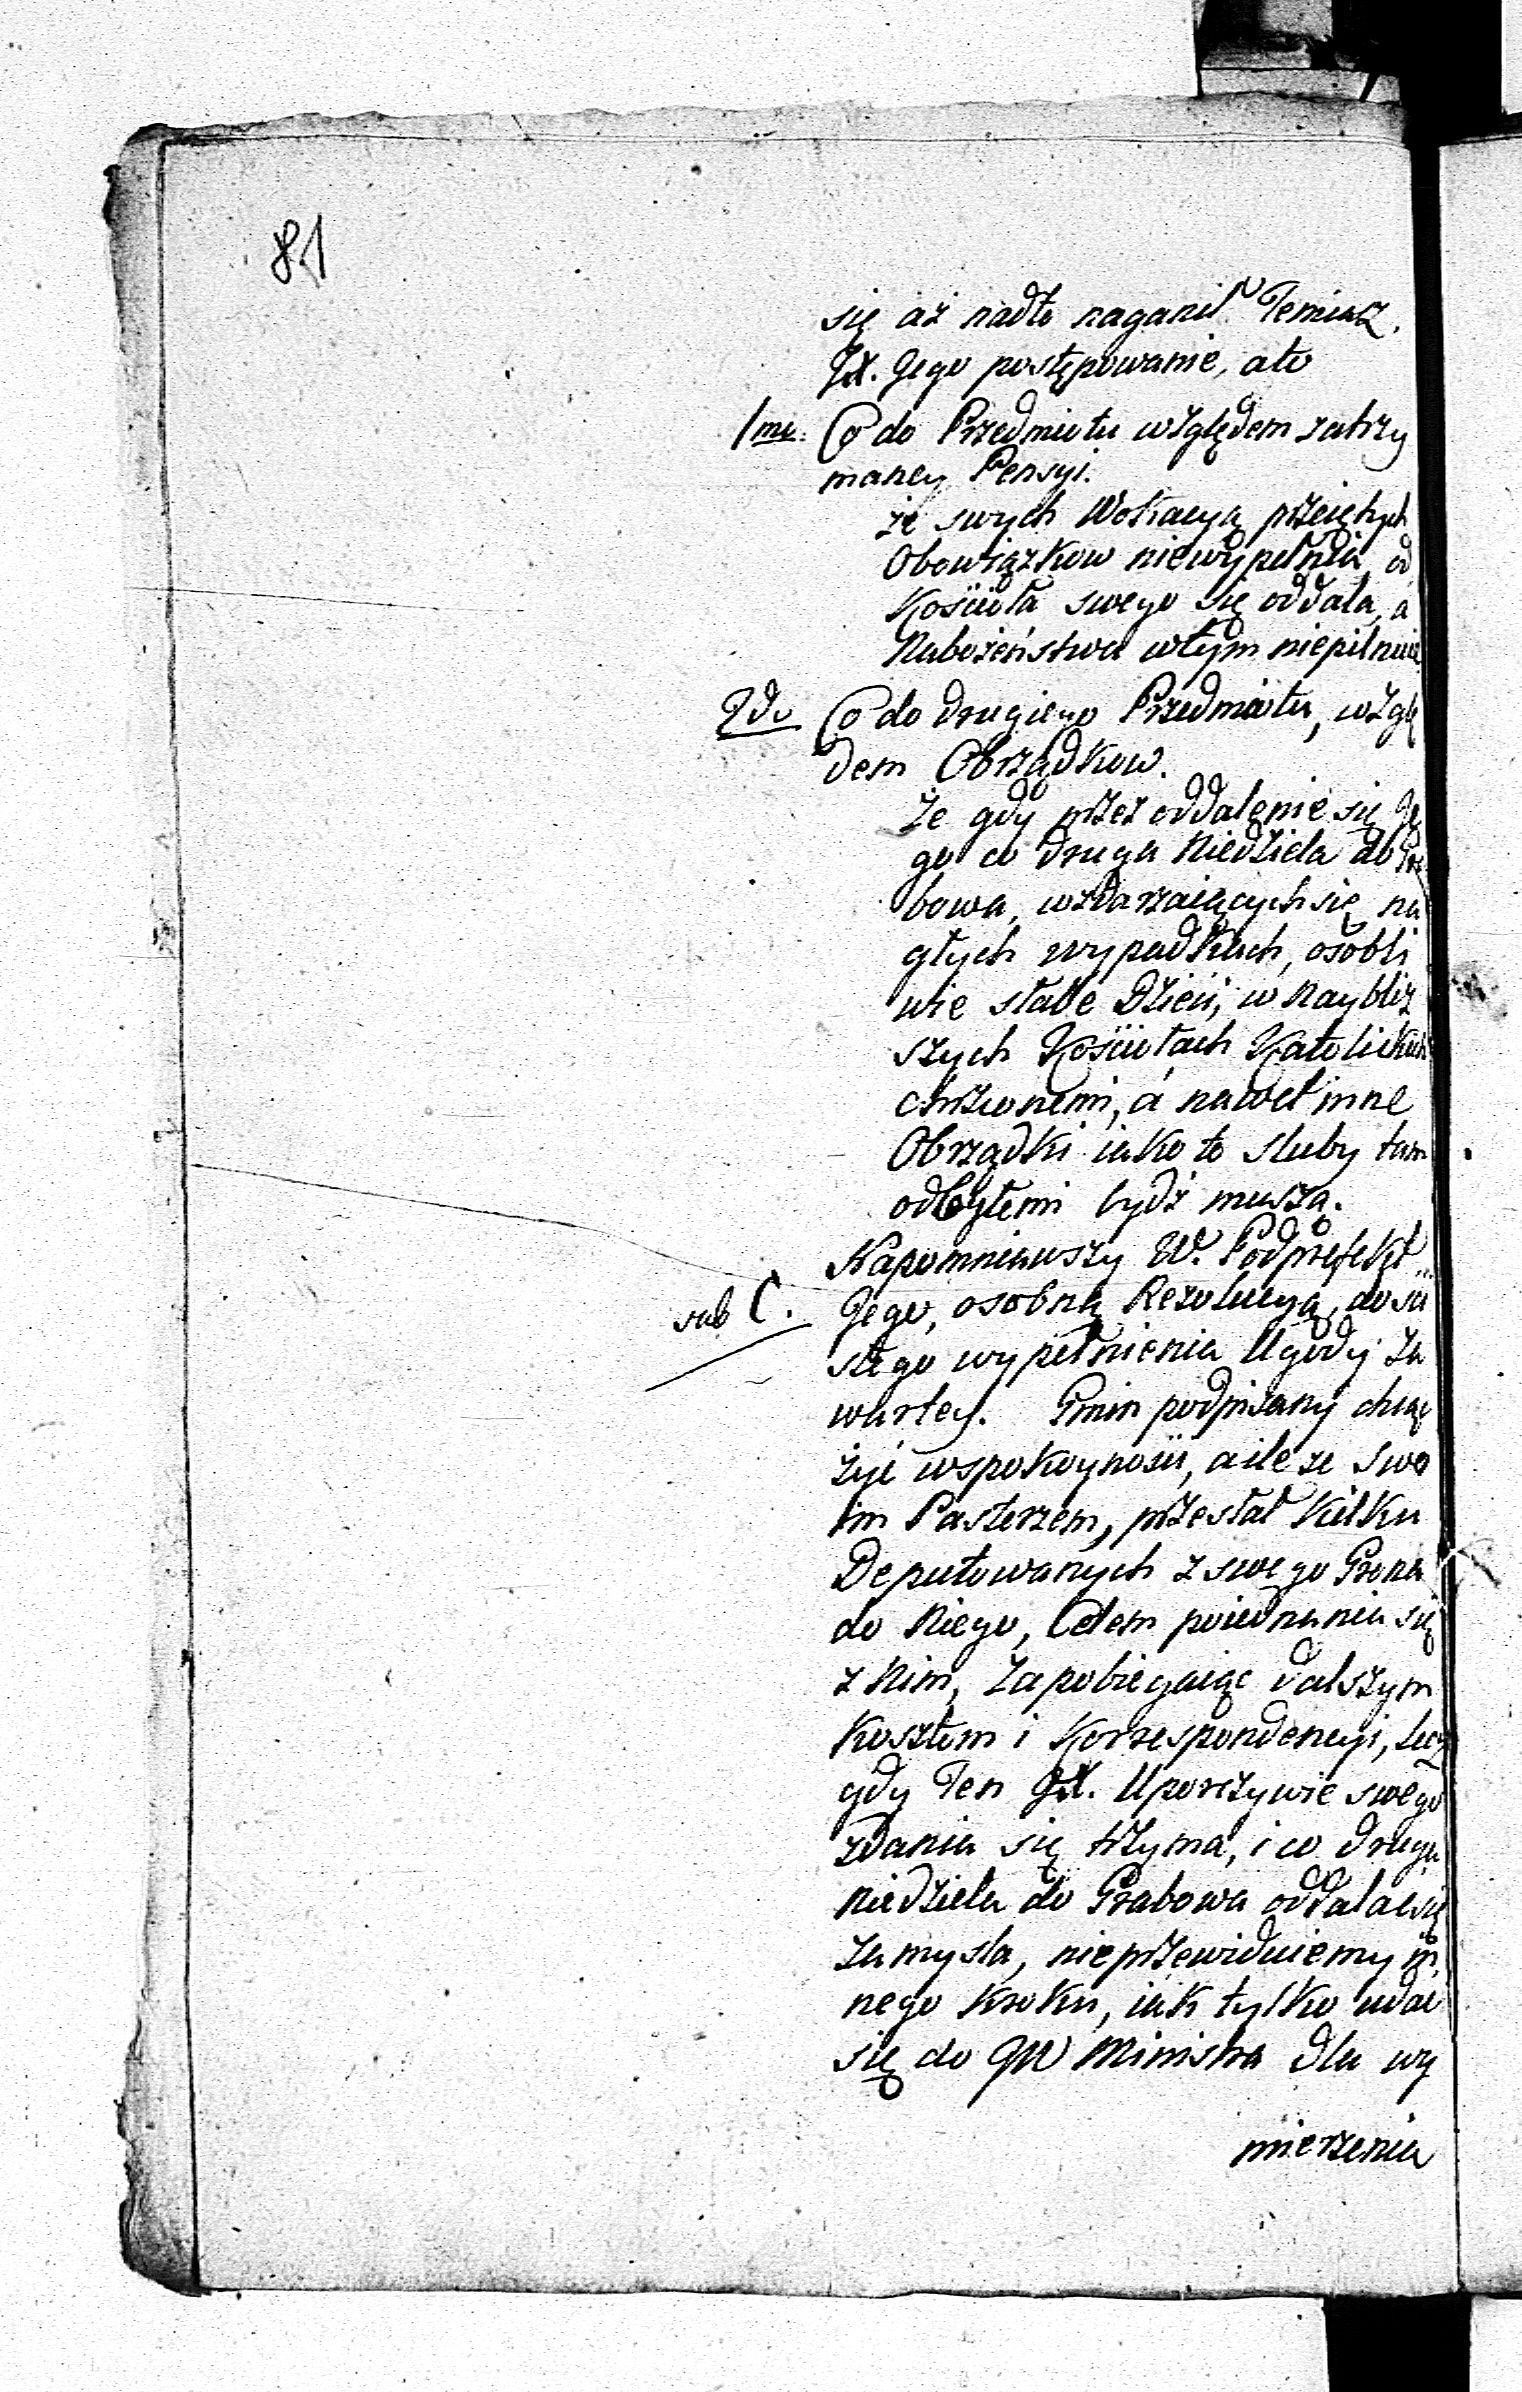 81
się aż nadto naganił Temiuż
JX. Jego postępowanie, ato
1mo. Co do Przedmiotu względem zatrzy
maney Pensyi.
że swych Wokacyą przeiętych
Obowiązkow niewypełnia, od
Kościoła swego się oddala, a
Nabożeństwa wtym niepilnuie
2do Co do drugiego Przedmiotu, wzglę
dem Obrządkow.
że gdy przez oddalenie się Je
go co druga Niedziela do Gra
bowa, wzdarzaiących się na
głych wypadkach, osobli
wie słabe Dzieci, w Naybliż
szych Kościołach Katolickich
chrzconemi, a nawet inne
Obrządki iako to sluby tam
odbytemi bydź muszą.
Napomniawszy W. Podprefekt
sub C. Jego, osobną Rezolucyą, do su
stego wypełnienia Ugody za
wartey. Gmin podpisany chcąc
żyć wspokoyności, a ile ze swo
im Pasterzem, przesłał kilku
Deputowanych z swego Grona
do Niego, Celem poiednania się
z Nim, zapobiegaiąc dalszym
kosztom i Korrespondencyi, lecz
gdy Ten JX. Uporczywie swego
zdania się trzyma, i co druga
niedziela do Grabowa oddalać się
zamysla, nieprzewiduiemy in
nego kroku, iak tylko udać
się do JW Ministra dla wy
mierzenia